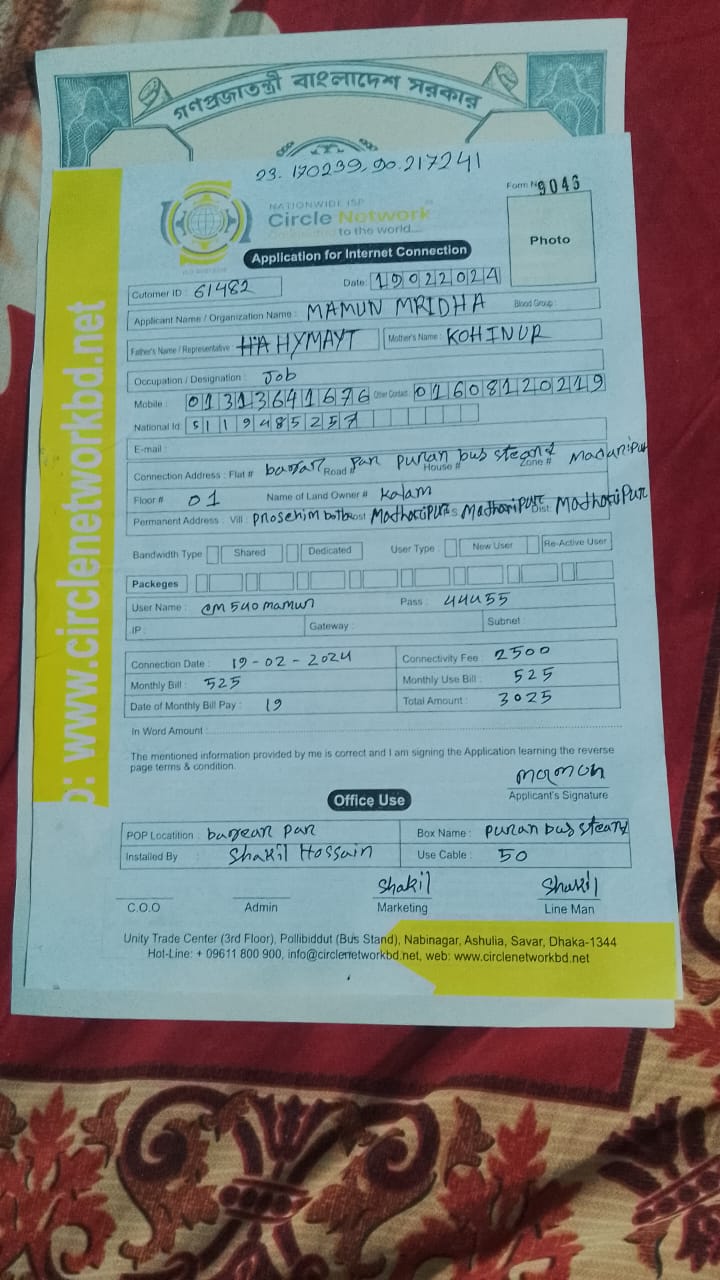 গণপ্রজাতন্ত্রী বাংলাদেশ সরকার
23.170239,90.217241
Form N 9046
NATIONWIDE ISP
Circle Network
to the world....
Photo
Application for Internet Connection
Cutomer ID : 61482 Date: 19022024
Applicant Name / Organization Name : MAMUN MRIDHA Blood Group :
Father's Name / Representative : HAHYMAYT Mother's Name : KOHINUR
Occupation / Designation : Job
Mobile : 01313641676 Other Contact : 01608120219
National Id: 5119485257
E-mail :
Connection Address : Flat # Road # Par puran bus steand House # Zone #
Floor # 01 Name of Land Owner # Kalam
Permanent Address : Vill : Dist: MadhariPur
Bandwidth Type Shared Dedicated User Type : New User Re-Active User
Packeges
User Name : cm540mamun Pass : 44455
IP : Gateway : Subnet
Connection Date : 19-02-2024 Connectivity Fee : 2500
Monthly Bill : 525 Monthly Use Bill : 525
Date of Monthly Bill Pay : 19 Total Amount : 3025
In Word Amount :
The mentioned information provided by me is correct and I am signing the Application learning the reverse
page terms & condition.
mamun
Applicant's Signature
Office Use
POP Locatition : Par Box Name : puran bus steand
Installed By : Shakil Hossain Use Cable : 50
Shakil Shakil
C.O.O Admin Marketing Line Man
Unity Trade Center (3rd Floor), Pollibiddut (Bus Stand), Nabinagar, Ashulia, Savar, Dhaka-1344
Hot-Line: + 09611 800 900, info@circlenetworkbd.net, web: www.circlenetworkbd.net
b: www.circlenetworkbd.net